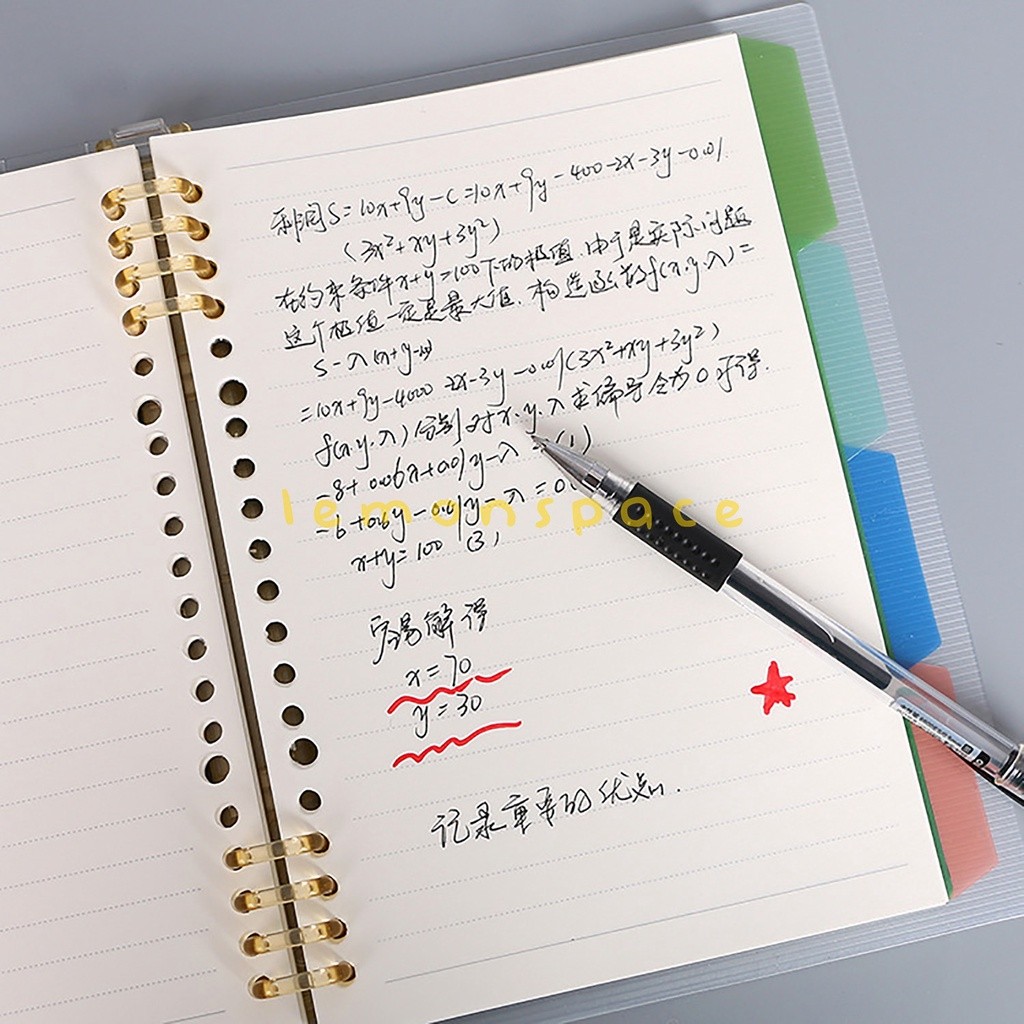 利润S=10x+9y-C=10x+9y-400-2x-3y-0.01
(3x²+xy+3y²)
在约束条件x+y=100下的极值.由于是实际问题
这个极值一定是最大值.构造函数f(x.y.λ)=
S-λ(x+y-100)
=10x+9y-4000-2x-3y-0.01(3x²+xy+3y²)
f(x.y.λ)分别对x.y.λ求偏导令为0可得.
=8+0.06x+0.01y-λ = (1)
=6+0.6y-0.01y-λ=0
x+y=100 (3)
lemonspace
容易解得
x=70
y=30
记录重要的优点.